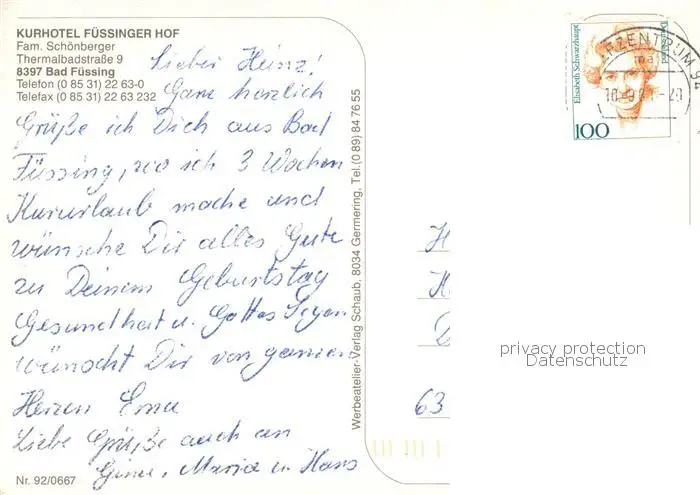 KURHOTEL FÜSSINGER HOF
Fam. Schönberger
Thermalbadstraße 9
8397 Bad Füssing
Telefon (0 85 31) 22 63-0
Telefax (0 85 31) 22 63 232
Lieber Heinz!
Ganz herzlich
Grüße ich Dich aus Bad
Füssing, wo ich 3 Wochen
Kururlaub mache und
wünsche Dir alles Gute
zu Deinem Geburtstag
Gesundheit u. Gottes Segen
wünscht Dir von ganzen
Herzen Erna
Liebe Grüße auch an
Maria u. Hans
Nr. 92/0667
Werbeatelier-Verlag Schaub, 8034 Germering, Tel. (0 89) 84 76 55
Elisabeth Schwarzhaupt
Deutsche Bundespost
100
FZENTRUM 94
ma
H
H
D
63
privacy protection
Datenschutz